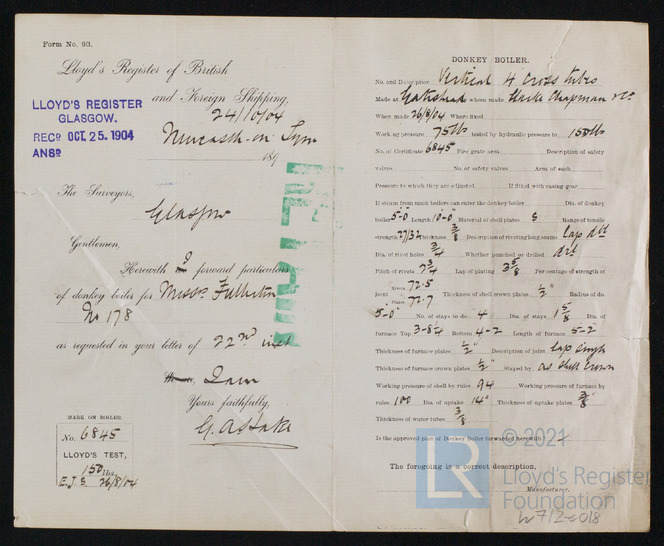 Form No. 93.
Lloyd's Register of British
and Foreign Shipping,
LLOYD'S REGISTER
GLASGOW.
RECD OCT. 25. 1904
ANSD
24/10/04
Newcastle-on-Tyne
189
The Surveyors,
Glasgow
Gentlemen,
Herewith I forward particulars
of donkey boiler for Messrs Fullerton
No 178
as requested in your letter of 22nd inst
I am
Yours faithfully,
MADE ON BOILER.
No. 6845
LLOYD'S TEST,
150 lbs.
E.J.S. 26/8/04
DONKEY BOILER.
No. and Description Vertical 4 Cross tubes
Made at Gateshead when made Clarke Chapman & Co
When made 26/8/04 Where fixed
Working pressure 75lb tested by hydraulic pressure to 150lb
No. of Certificate 6845 Fire grate area Description of safety
valves No. of safety valves Area of each
Pressure to which they are adjusted. If fitted with easing gear
If steam from main boilers can enter the donkey boiler Dia. of donkey
boiler 5-0" Length 10-0" Material of shell plates S Range of tensile
strength 27/32 Thickness 3/8 Description of riveting long. seams lap dbl
Dia. of rivet holes 3/4 Whether punched or drilled drd
Pitch of rivets 2 3/4 Lap of plating 3 5/8 Per centage of strength of
joint Rivets 72.5
Plates 72.7 Thickness of shell crown plates 1/2" Radius of do.
5-0" No. of stays to do. 4 Dia. of stays 1 5/8 Dia. of
furnace Top 3-8 1/4 Bottom 4-2 Length of furnace 5-2"
Thickness of furnace plates 1/2" Description of joint lap single
Thickness of furnace crown plates 1/2" Stayed by as shell crown
Working pressure of shell by rules 94 Working pressure of furnace by
rules 100 Dia. of uptake 14" Thickness of uptake plates 3/8"
Thickness of water tubes 3/8
Is the approved plan of Donkey Boiler forwarded herewith?
The foregoing is a correct description,
Manufacturer.
LR
© 2021
Lloyd's Register
Foundation